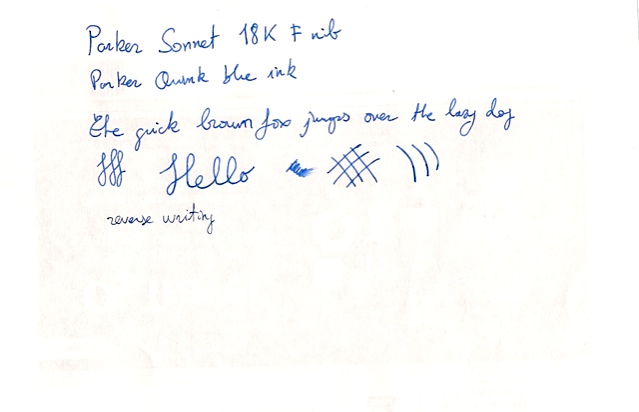 Parker Sonnet 18K F nib
Parker Quink blue ink
The quick brown fox jumps over the lazy dog
fff Hello
reverse writing